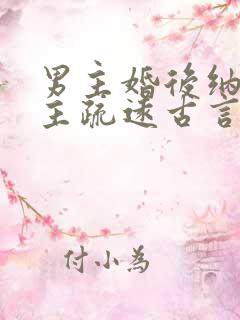 男主婚後納
主疏遠古言
付小為